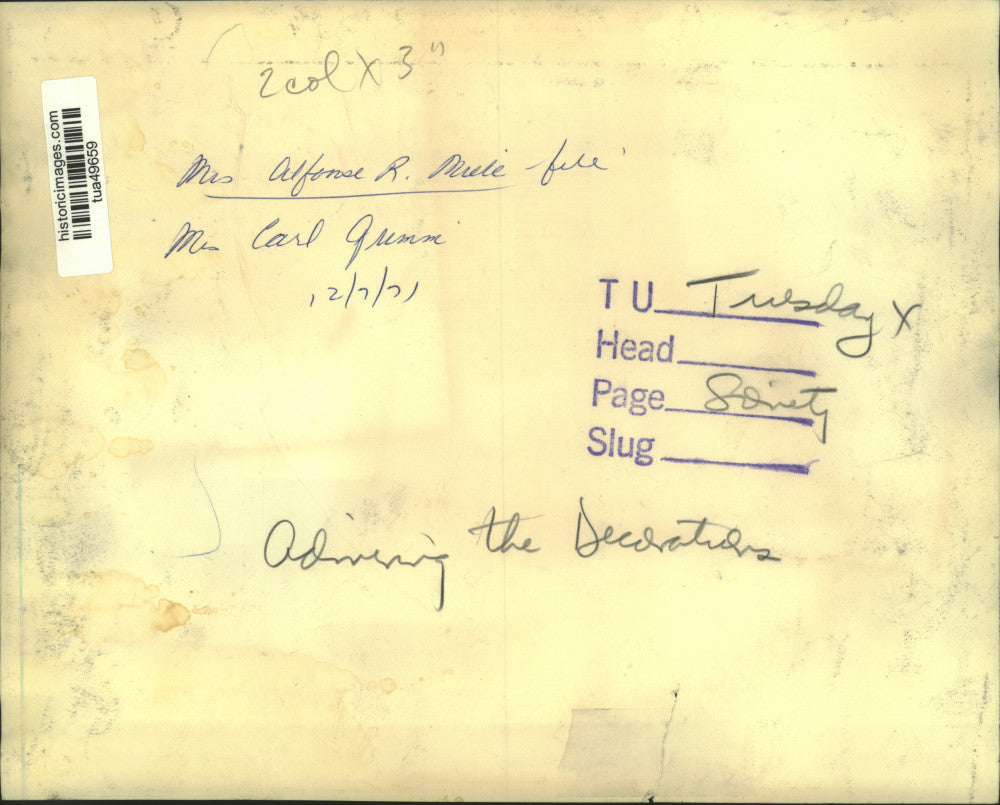 2 col X 3"
historicimages.com
tua49659
Mrs Alfonse R. Miele - file
Mrs Carl Grimm
12/7/71
TU Tuesday X
Head
Page Society
Slug
Admiring the Decorations